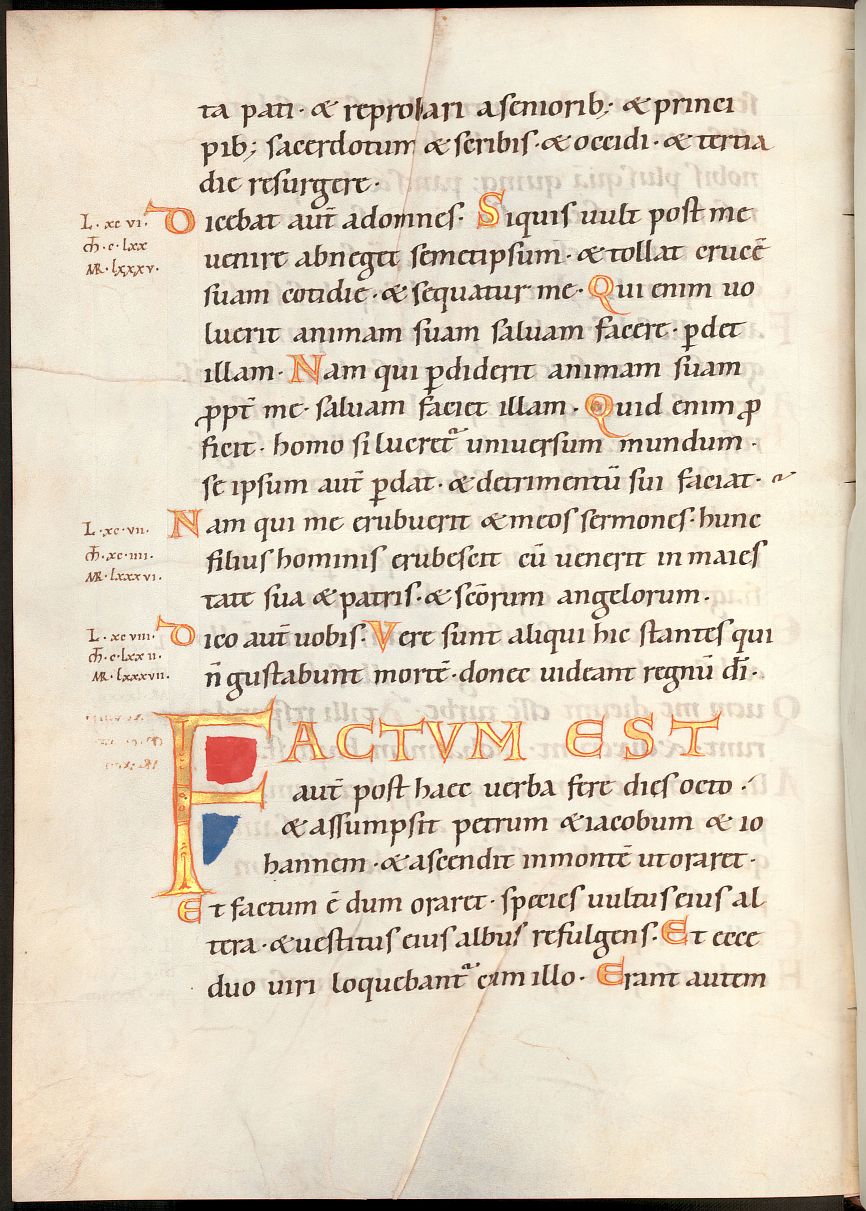 ta pati · & reprobari a seniorib; & princi
pib; sacerdotum & scribis · & occidi · & tertia
die resurgere ·
L · xc vi · Dicebat aut̄ ad omnes · Siquis uult post me
m̄ · c · lxx uenire abneget semetipsum · & tollat crucē
MR · lxxxv · suam cotidie · & sequatur me · Qui enim uo
luerit animam suam saluam facere · ꝑdet
illam · Nam qui ꝑdiderit animam suam
ꝓpt̄ me · saluam faciet illam · Quid enim ꝓ
ficit · homo si lucret᷑ uniuersum mundum ·
se ipsum aut̄ ꝑdat · & detrimentū sui faciat ·
L · xc vii · Nam qui me erubuerit & meos sermones · hunc
m̄ · xc · iiii · filius hominis erubescit cū uenerit in maies
MR · lxxxvi · tate sua & patris · & sc̄orum angelorum ·
L · xc viii · Dico aut̄ uobis · Vere sunt aliqui hic stantes qui
m̄ · c · lxx ii · n̄ gustabunt mortē · donec uideant regnū dī ·
MR · lxxxvii ·
FACTVM EST
aut̄ post haec uerba fere dies octo ·
& assumpsit petrum & iacobum & io
hannem · & ascendit in montē ut oraret ·
Et factum ē dum oraret · species uultus eius al
tera · & uestitus eius albus refulgens · Et ecce
duo uiri loquebant᷑ cum illo · Erant autem